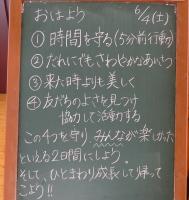 おはよう 6/4(土)
① 時間を守る(5分前行動)
② だれにでも、さわやかなあいさつ
③ 来た時よりも美しく
④ 友だちのよさを見つけ
協力して活動する
この4つを守り、みんなが楽しかった
といえる2日間にしよう。
そして、ひとまわり成長して帰って
こよう!!